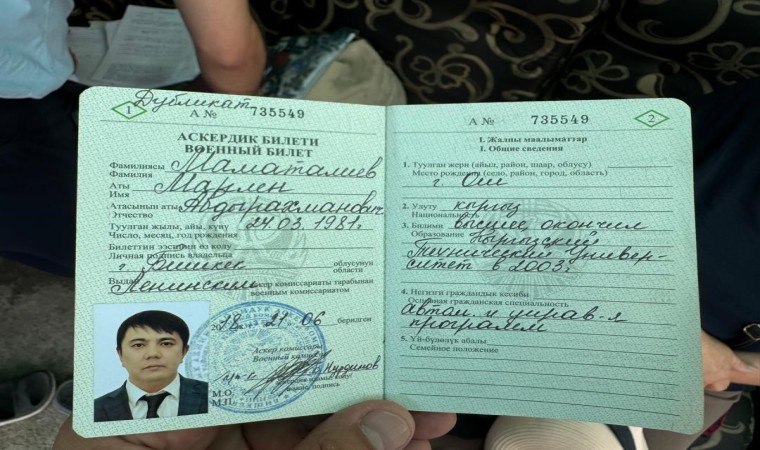 1
Дубликат
А № 735549
АСКЕРДИК БИЛЕТИ
ВОЕННЫЙ БИЛЕТ
Фамилиясы
Фамилия Маматалиев
Аты
Имя Марлен
Атасынын аты
Отчество Абдырахманович
Туулган жылы, айы, күнү
Число, месяц, год рождения 24.03.1981г.
Билеттин ээсинин өз колу
Личная подпись владельца
г. Бишкек облусунун
области
Выдан Ленинским аскер комиссариаты тарабынан
военным комиссариатом
2018 21 06 берилген
Аскер комиссары
Военный комиссар
Нурдинов
М.О.
М.П.
А № 735549
2
I. Жалпы маалыматтар
I. Общие сведения
1. Туулган жери (айыл, район, шаар, облусу)
Место рождения (село, район, город, область)
г. Ош
2. Улуту
Национальность кыргыз
3. Билими
Образование высшее, окончил
Кыргызский
Технический Универ-
ситет в 2003г
4. Негизги граждандык кесиби
Основная гражданская специальность
Автом. и управ-я
программ
5. Үй-бүлөлүк абалы
Семейное положение